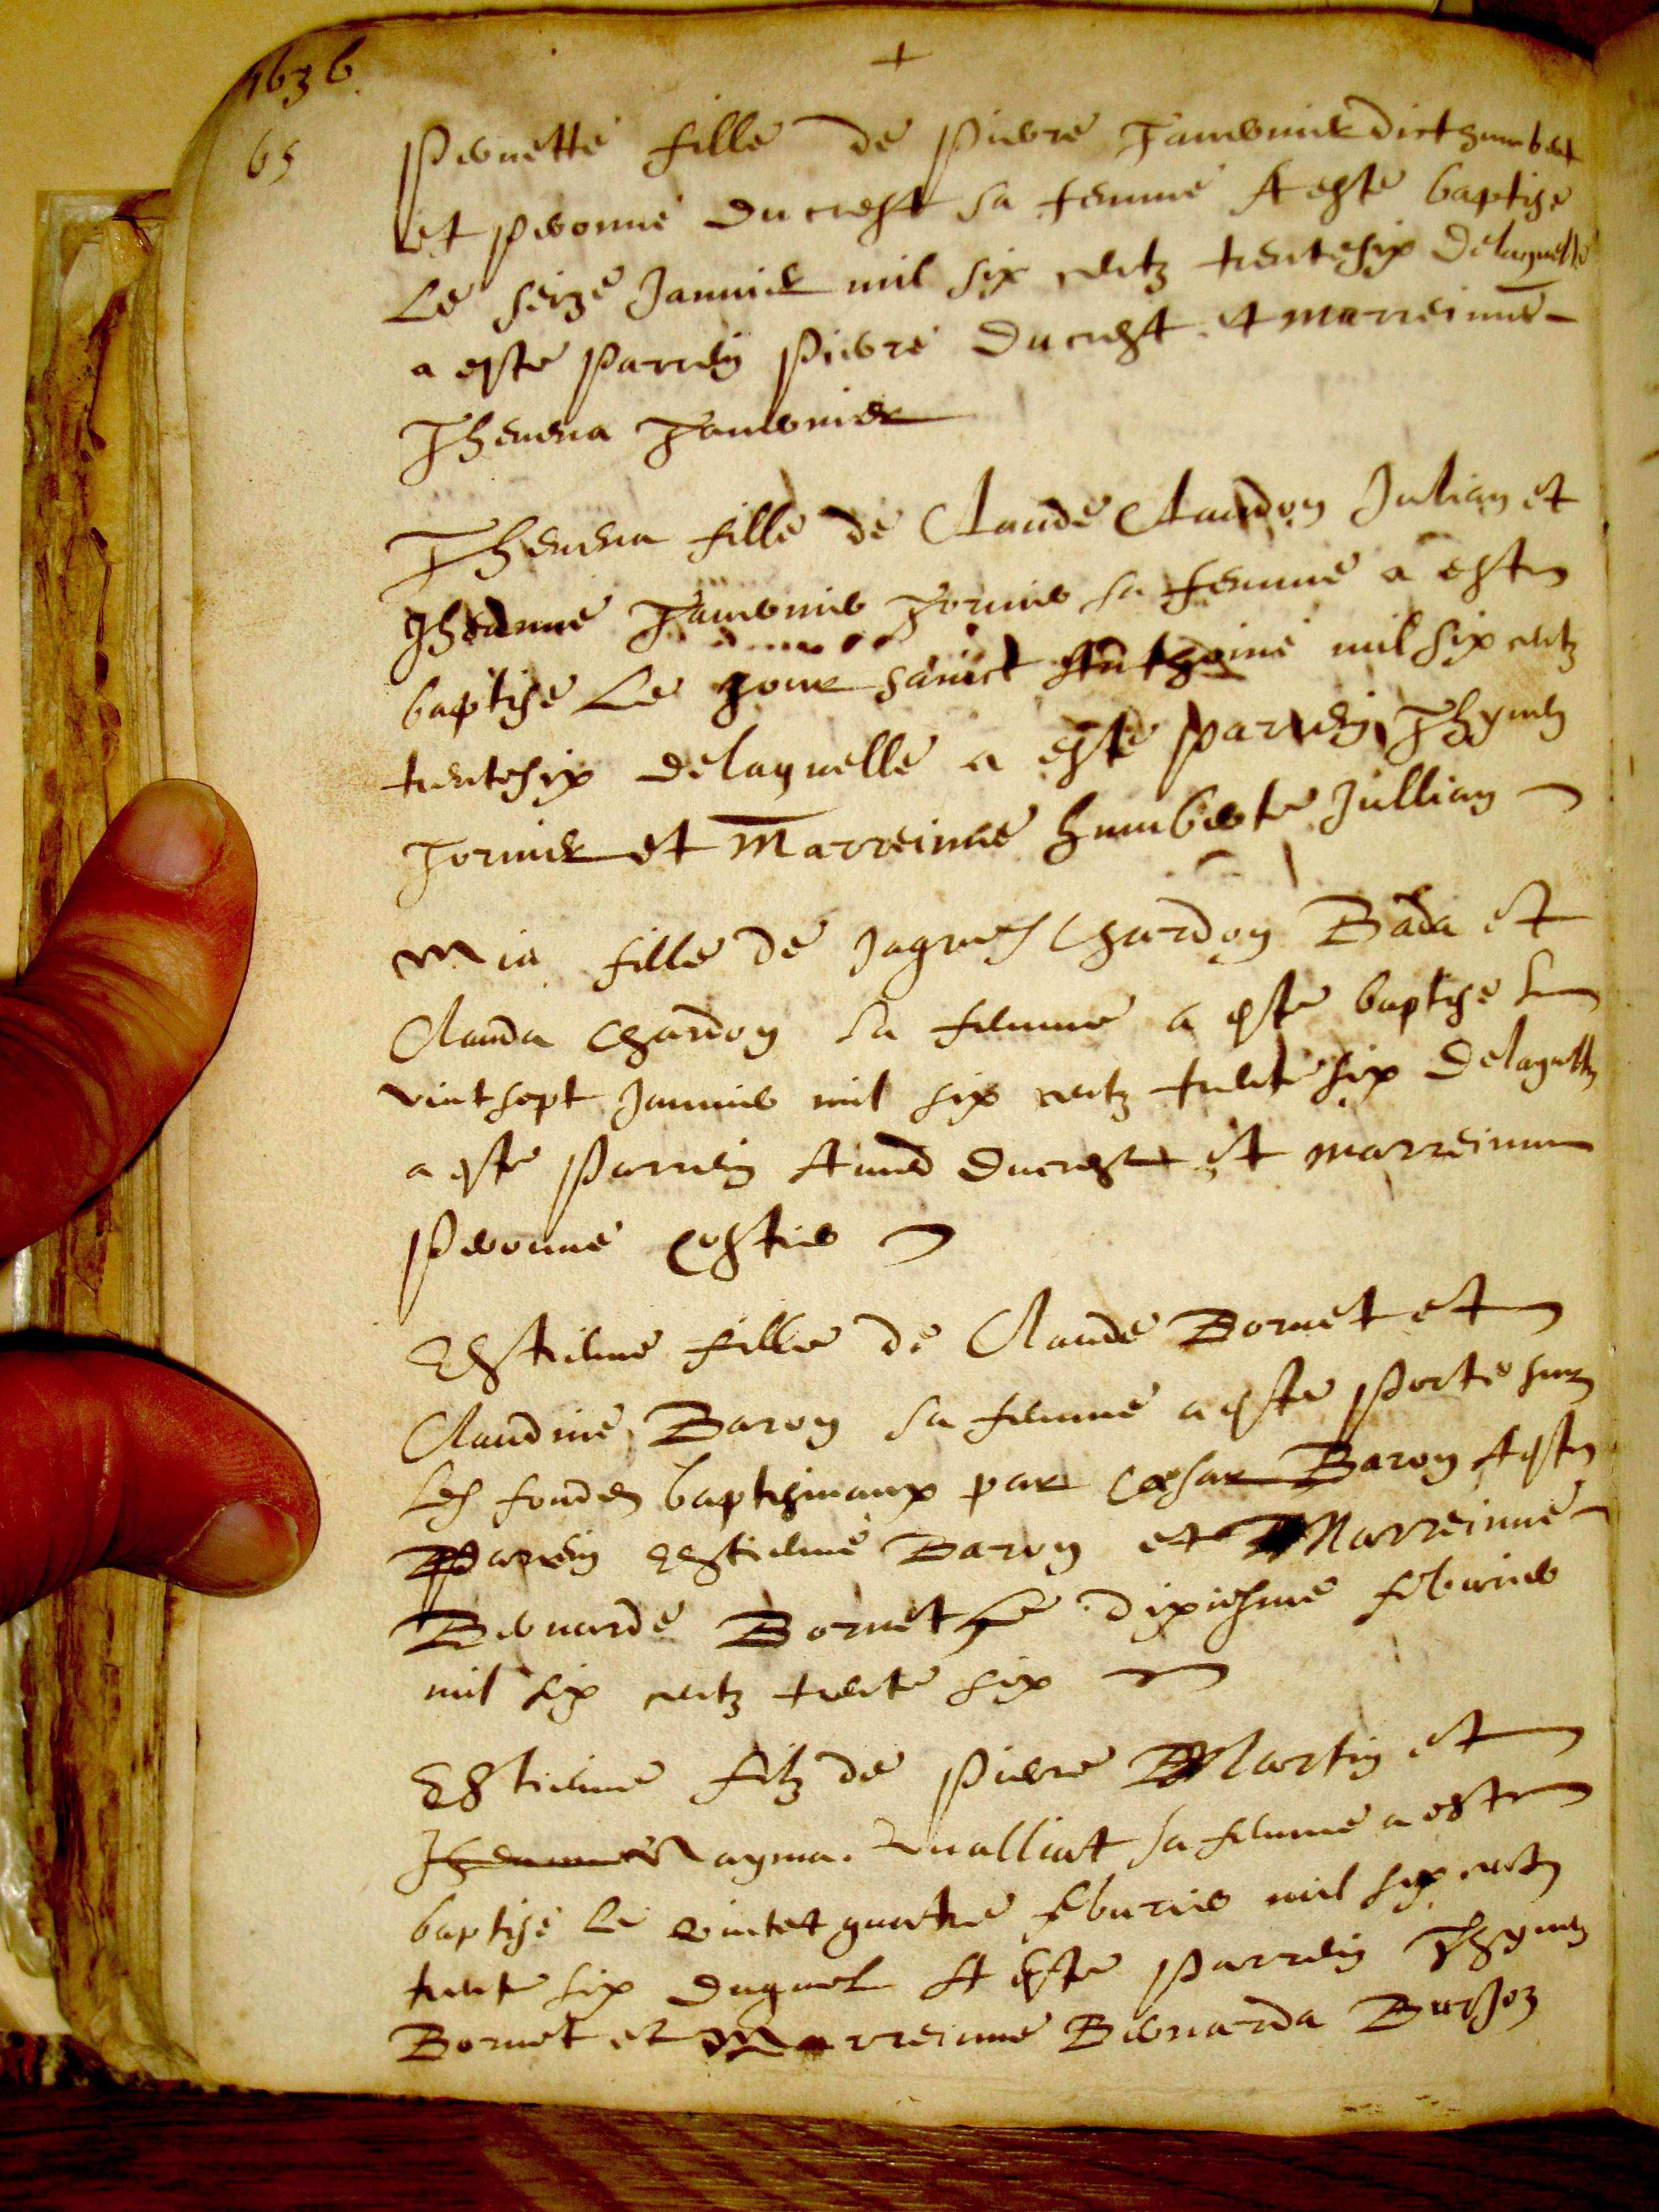 1636.
+
65
Pernette fille de Pierre Tavernier dict humbert
et Pernonne Ducrest sa femme A este baptise
Le seize Janvier mil six centz trentesix Delaquelle
a este Parrein Pierre Ducrest et marreinne
Thevena Tavernier
Thevena fille de Claude Claudon Julian et
Jheanne Tavernier Tornier sa femme a este
baptise Le jour sainct Anthoine mil six centz
trentesix delaquelle a este parrein Thyven
Tornier et Marreinne humberte Jullian
Mia fille de Jaques Chardon Bada et
Clauda Chardon sa femme a este baptise le
vintsept Janvier mil six centz trente six Delaquelle
a este Parrein Amed Ducrest et marreinne
Pernonne Costier
Estienne fille de Claude Bornet et
Claudine Baron sa femme a este Porte sus
Les fondes baptismaux par Cesar Baron A este
Parrein Estienne Baron et Marreinne
Bernarde Bornet Le dixiesme febvrier
mil six centz trente six
Estienne filz de Pierre Martin et
Jheanne Nayma. sa femme a este
baptise Le vintet quatre febvrier mil six centz
trente six Duquel A Este Parrein Thyven
Bornet et Marreinne Bernarda